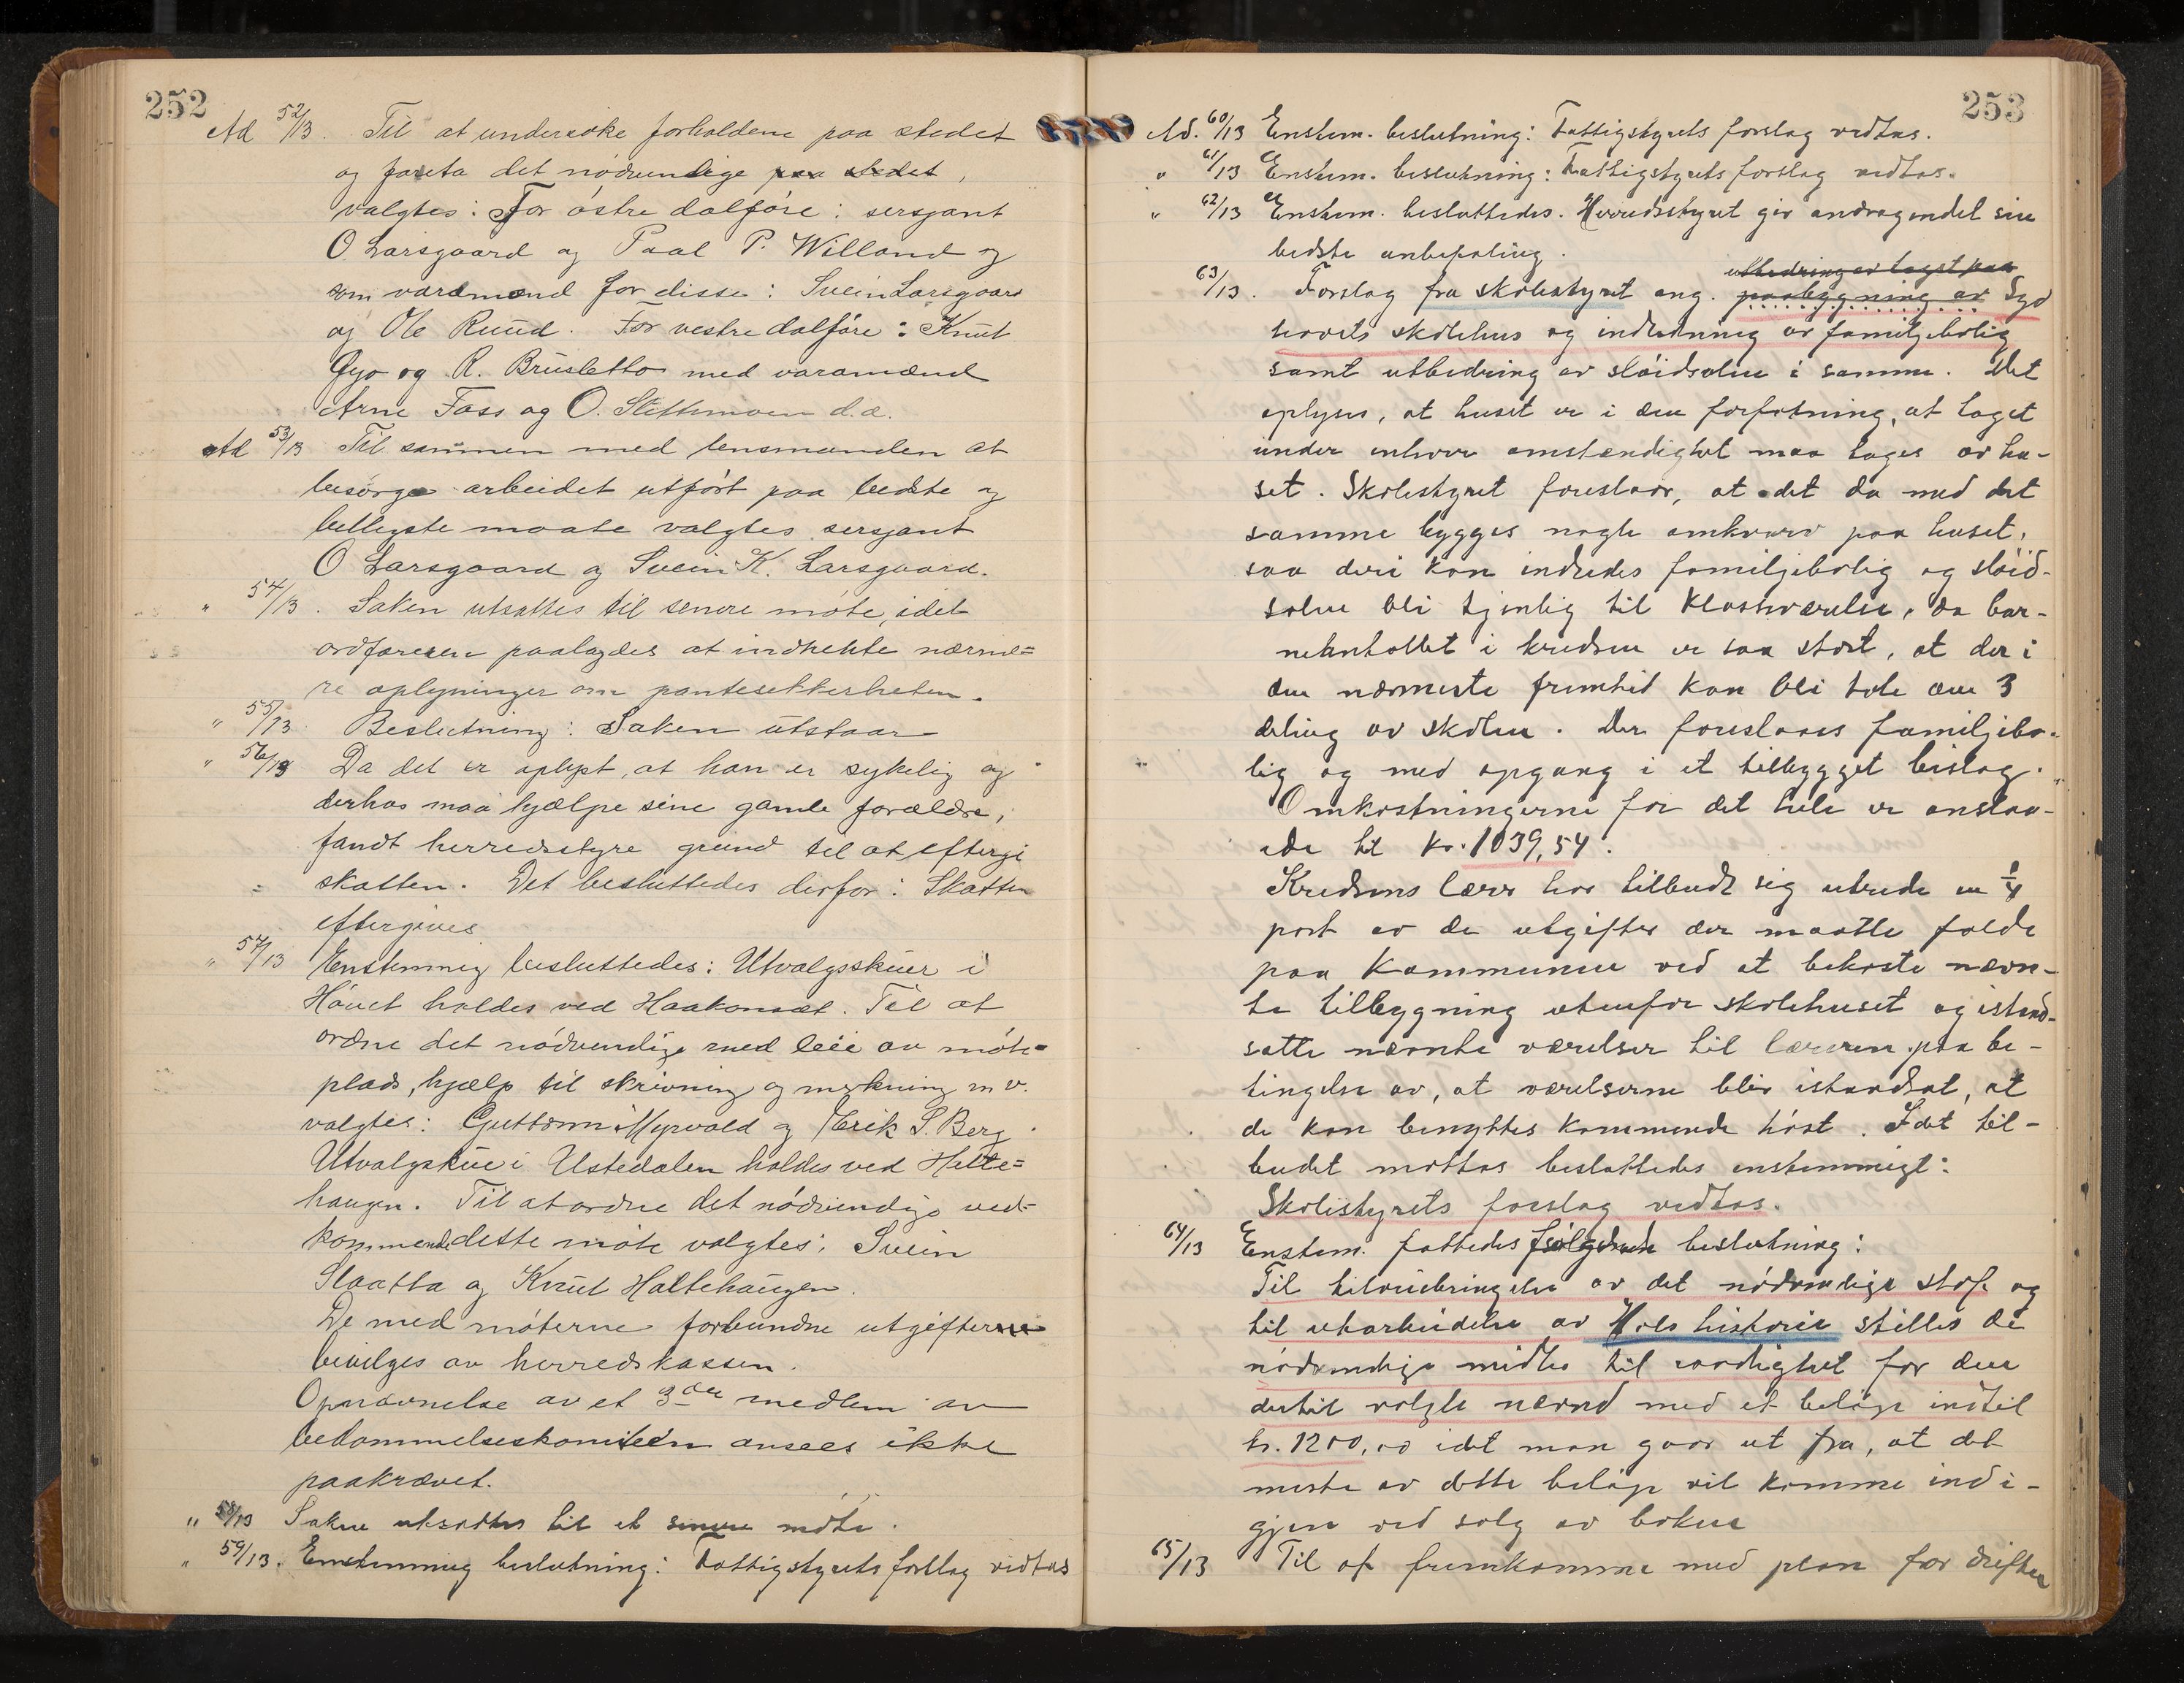 252
Ad 52/13. Til at undersöke forholdene paa stedet
og foreta det nödvendige paa stedet,
valgtes: For östre dalföre: sersjant
O. Larsgaard og Paal P. Willand og
som varamænd for disse: Svein Larsgaard
og Ole Ruud. For vestre dalföre: Knut
Gyo og R. Brusletto med varamænd
Arne Foss og O. Slettemoen d.æ.
Ad 53/13 Til sammen med lensmanden at
besörge arbeidet utfört paa bedste og
billigste maate valgtes sersjant
O Larsgaard og Svein K. Larsgaard.
" 54/13. Saken utsattes til senere möte, idet
ordföreren paalagdes at indhente nærme=
re oplysninger om pantesikkerheten.
" 55/13 Beslutning: Saken utstaar
" 56/13 Da det er oplyst, at han er sykelig og
derhos maa hjælpe sine gamle forældre,
fandt herredsstyre grund til at eftergi
skatten. Det besluttedes derfor: Skatten
eftergives
" 57/13 Enstemmig besluttedes: Utvalgsskuer i
Hövet holdes ved Haakonsæt. Til at
ordne det nödvendige med leie av möte=
plads, hjælp til skrivning og merkning m v.
valgtes: Guttorm Myrvold og Erik S. Berg
Utvalgskue i Ustedalen holdes ved Halte=
haugen. Til at ordne det nödvendige ved=
kommende dette möte valgtes: Svein
Slaatta og Knut Haltehaugen.
De med möterne forbundne utgifterne
bevilges av herredskassen.
Opnævnelse av et 3die medlem av
bedömmelseskomiteen ansees ikke
paakrævet.
" 58/13 Saken utsattes til et senere möte.
" 59/13. Enstemmig beslutning: Fattigstyrets forslag vedtas
253
Ad. 60/13 Enstem. beslutning: Fattigstyrets forslag vedtas.
" 61/13 Enstem. beslutning: Fattigstyrets forslag vedtas.
" 62/13 Enstem. besluttedes. Herredsstyret gir andragendet sin
bedste anbefaling.
utbedring av taget paa
63/13. Forslag fra skolestyret ang. paabygning av Syd
hovets skolehus og indredning av familjebolig
samt utbedring av slöidsalen i samme. Det
oplyses, at huset er i den forfatning, at taget
under enhver omstændighet maa tages av hu-
set. Skolestyret foreslaar, at det da med det
samme bygges nogle omkvarv paa huset,
saa deri kan indredes familjebolig og slöid-
salen bli tjenlig til klasseværelse, da bar-
neantallet i kredsen er saa stort, at der i
den nærmeste fremtid kan bli tale om 3
deling av skolen. Der foreslaaes familjebo-
lig og med opgang i et tilbygget bislag.
Omkostningerne for det hele er anslaa-
ede til kr. 1039,54.
Kredsens lærer har tilbudt sig utrede en 1/4
part av de utgifter der maatte falde
paa kommunen ved at bekoste nævn-
te tilbygning utenfor skolehuset og istand-
sætte nævnte værelser til læreren paa be-
tingelse av, at værelserne blir istandsat, at
de kan benyttes kommende höst. Idet til-
budet mottas besluttedes enstemmigt:
Skolestyrets forslag vedtas.
64/13 Enstem. fattedes fölgende beslutning:
Til tilveiebringelse av det nödvendige stof og
til utarbeidelse av Hols historie stilles de
nödvendige midler til raadighet for den
dertil valgte nævnd med et belöp indtil
kr. 1200,00 idet man gaar ut fra, at det
meste av dette belöp vil komme ind i-
gjen ved salg av boken
65/13 Til at fremkomme med plan for driften